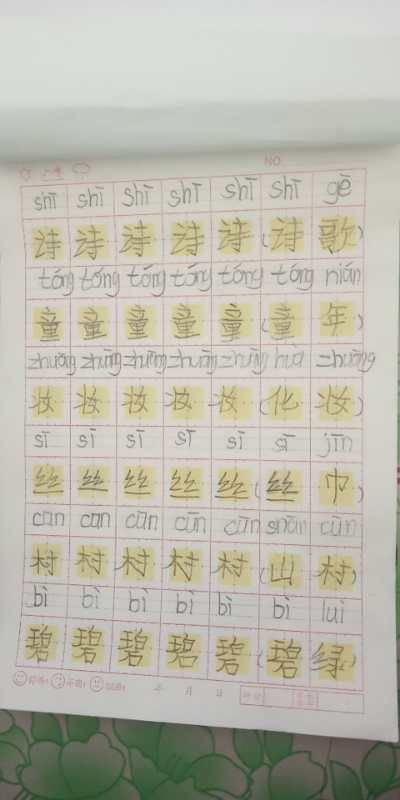 NO.
shī shī shī shī shī shī gē
诗 诗 诗 诗 诗 (诗 歌)
tóng tóng tóng tóng tóng tóng nián
童 童 童 童 童 (童 年)
zhuāng zhuāng zhuāng zhuāng zhuāng huà zhuāng
妆 妆 妆 妆 妆 (化 妆)
sī sī sī sī sī sī jīn
丝 丝 丝 丝 丝 (丝 巾)
cūn cūn cūn cūn cūn shān cūn
村 村 村 村 村 (山 村)
bì bì bì bì bì bì luì
碧 碧 碧 碧 碧 (碧 绿)
年 月 日